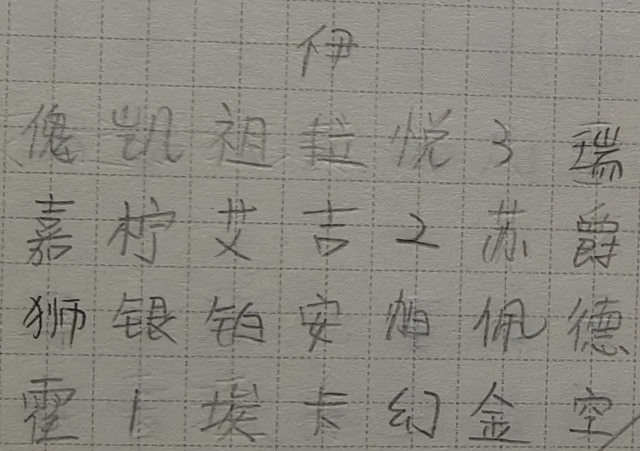 伊
傀 凯 祖 拉 悦 3 瑞
嘉 柠 艾 吉 2 苏 爵
狮 银 铂 安 帕 佩 德
霍 1 埃 卡 幻 金 空